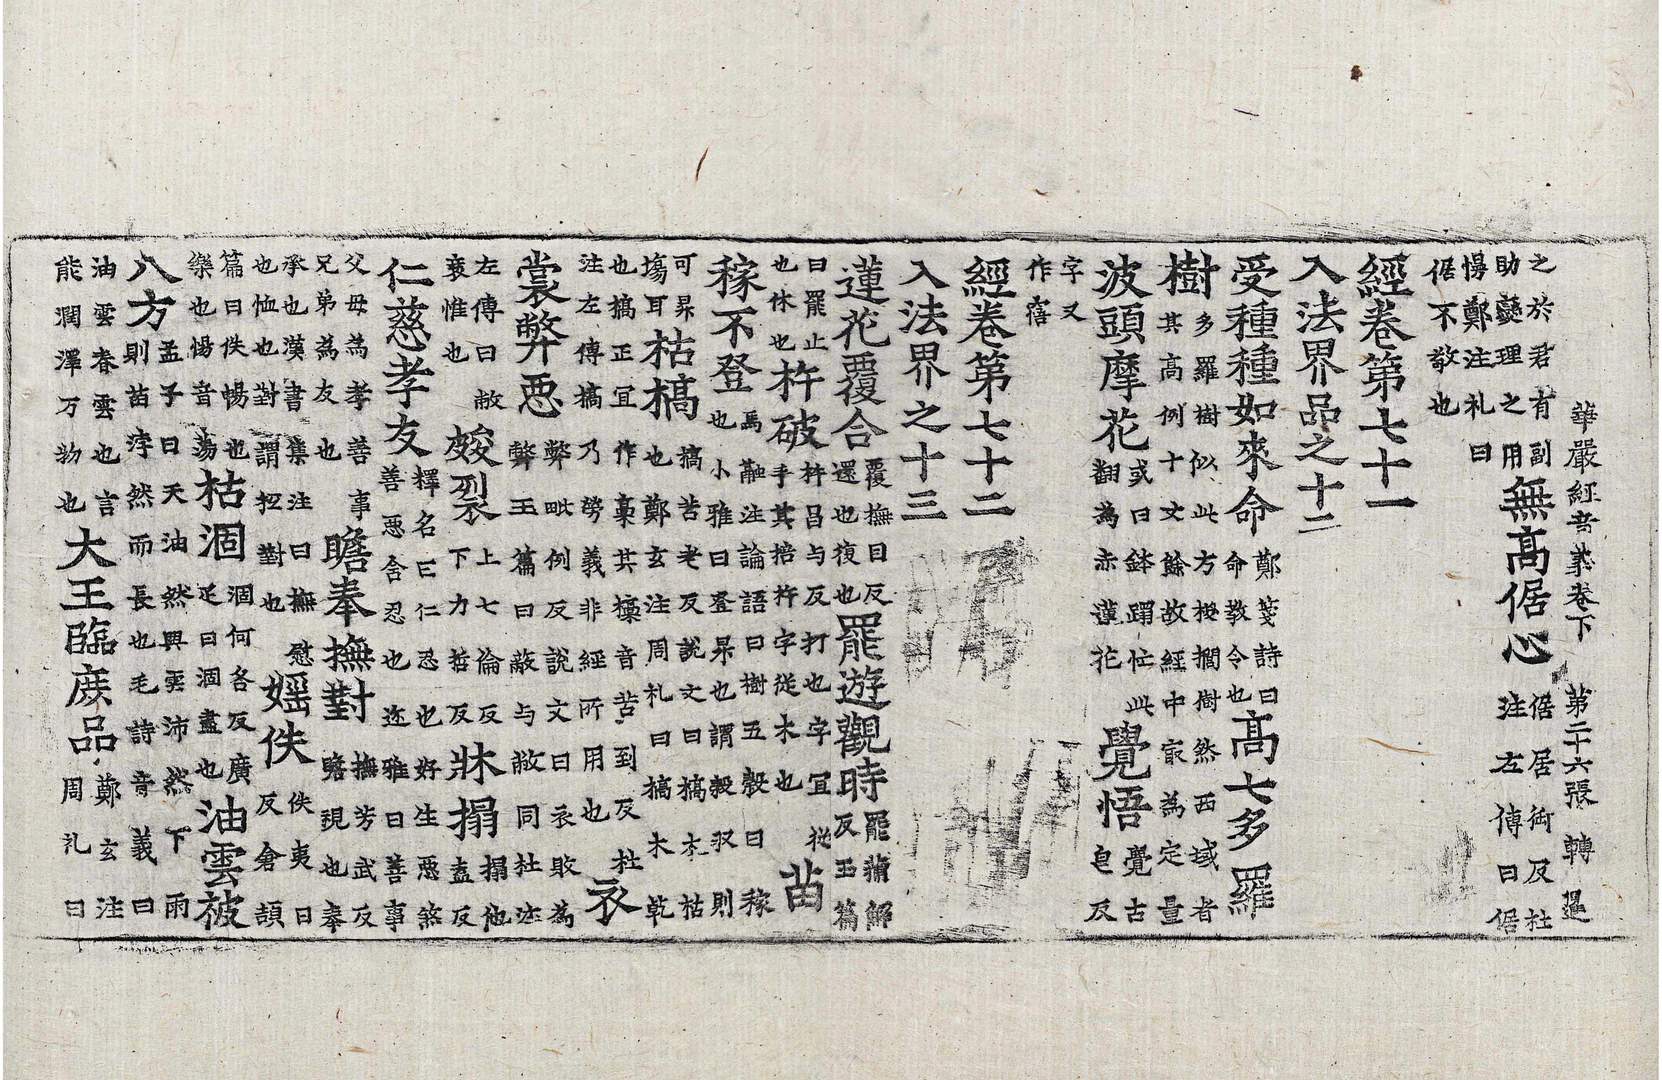 華嚴經音義卷下 第二十六張 轉
之於君有副
助燮理之用無高倨心倨居御反杜
慢鄭注礼曰注左傳曰倨
倨不敬也
經卷第七十一
入法界品之十二
受種種如來命鄭箋詩曰命教令也高七多羅
樹多羅樹似此方椶櫚樹然西域者其高例十丈餘故經中最為定量
波頭摩花或曰鉢蹋忙此翻為赤蓮花覺悟覺古皂反
字又
作寤
經卷第七十二
入法界之十三
蓮花覆合覆撫目反還也復也罷遊觀時罷蒲解反玉篇
曰罷止也休也杵破杵昌与反打也字宜從手其掊杵字從木也苗
稼不登馬融注論語曰樹五穀曰稼也小雅曰登杲也謂穀収則
可昇塲耳枯槁槁苦老反說文曰槁木枯也鄭玄注周礼曰槁木乾
也槁正宜作槀其槁音苦到反杜注左傳槁乃勞義非經所用也衣
裳弊惡弊毗例反說文曰衣敗為弊玉篇曰敝与敝同杜注
左傳曰敝衰惟也皴裂上七倫反下力哲反牀搨搨他盍反
仁慈孝友釋名曰仁忍也好生惡煞善惡含忍也迩雅曰善事
父母為孝善事兄弟為友也瞻奉撫對撫芳武反瞻視也奉
承也漢書集注曰撫慰也恤也對謂扭對也婬佚佚夷日反倉頡
篇曰佚暢也樂也惕音蕩枯涸涸何各反廣疋曰涸盡也油雲被
八方孟子曰天油然興雲沛然下雨則苗浡然而長也毛詩音義曰
油雲春雲也言能潤澤万物也大王臨庻品鄭玄注周礼曰